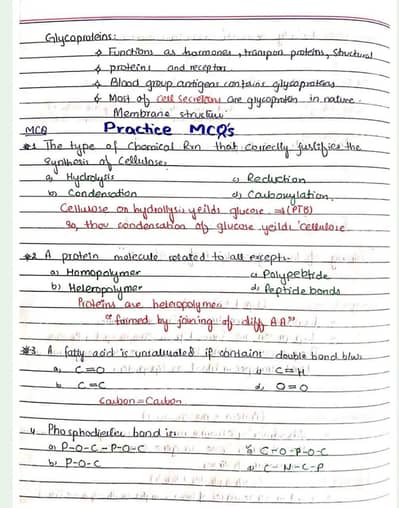 Glycoproteins:
❖ Functions as hormones, transport proteins, structural
❖ proteins and receptor
❖ Blood group antigens contains glycoproteins
❖ Most of cell secretions are glycoprotein in nature.
Membrane structure
MCQ Practice MCQ's
#1 The type of Chemical Rxn that correctly justifies the
synthesis of Cellulose:
a) Hydrolysis c) Reduction
b) Condensation d) Carboxylation.
Cellulose on hydrollysis yeilds glucose ⇒ (PTB)
So, thou condensation of glucose yeilds cellulose.
#2 A protein molecule related to all except:-
a) Homopolymer c) Polypeptide
b) Heteropolymer d) Peptide bonds
Proteins are heteropolymer
"formed by joining of diff AA"
#3 A fatty acid is unsaturated if contains double bond b/w
a, C=O C=H
b, C=C d, O=O
Carbon=Carbon
4, Phosphodiester bond is:
a) P-O-C-P-O-C c) C-O-P-O-C
b) P-O-C d) C-N-C-P